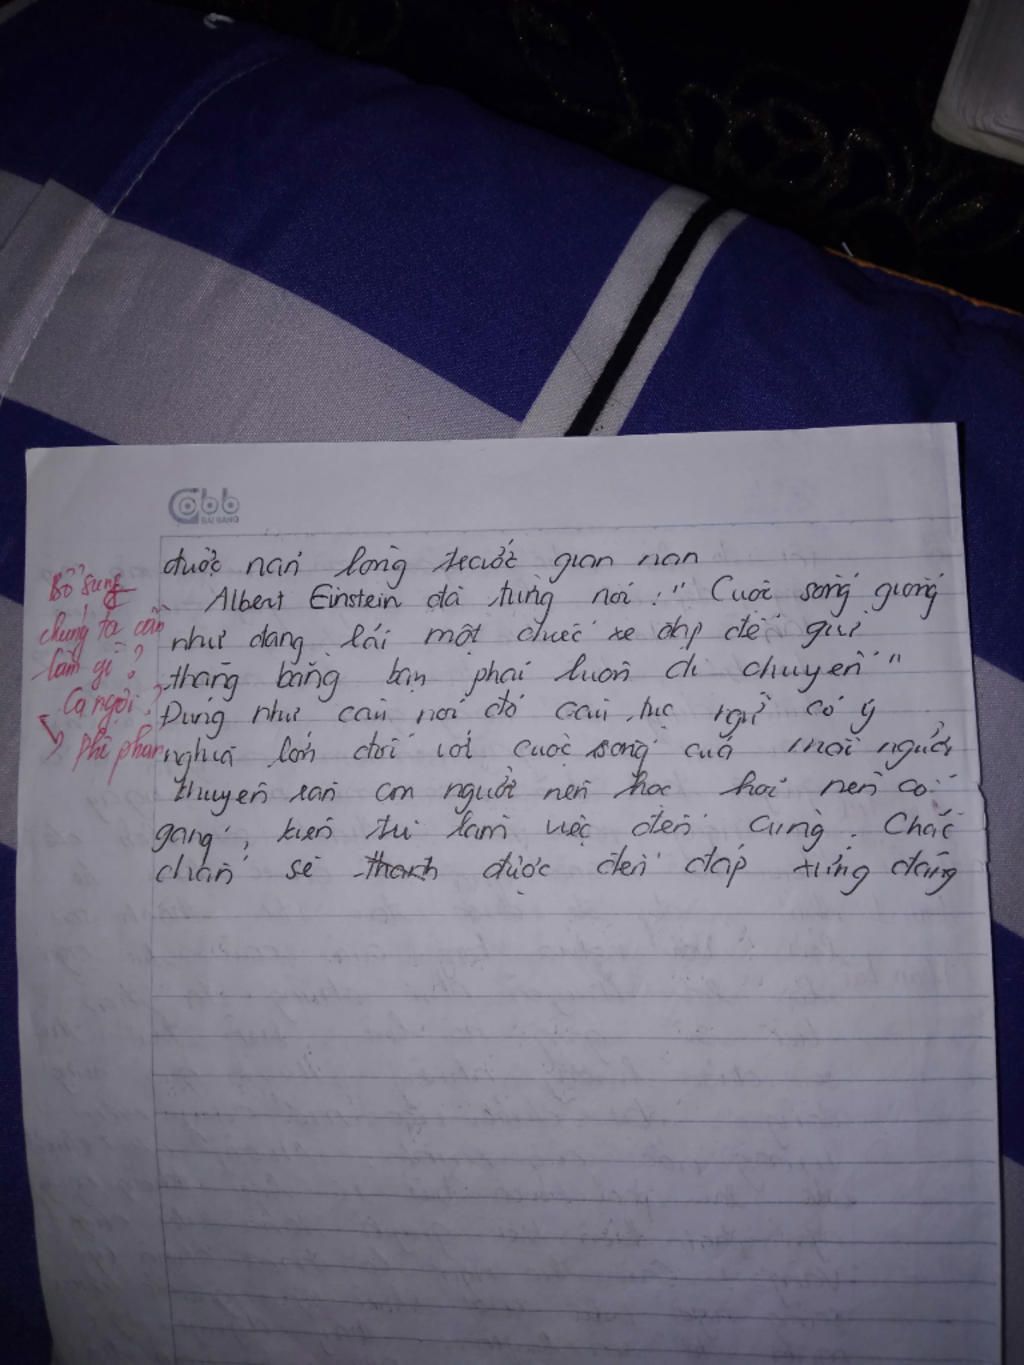 Cabb
BÃI BẰNG
được nản lòng trước gian nan
Albert Einstein đã từng nói: " Cuộc sống giống
như đang lái một chiếc xe đạp để giữ
thăng bằng bạn phải luôn di chuyển "
Đúng như câu nói đó câu tục ngữ có ý
nghĩa lớn đối với cuộc sống của mỗi người
khuyên răn con người nên học hỏi nên cố
gắng, kiên trì làm việc đến cùng. Chắc
chắn sẽ thành được đền đáp xứng đáng
Bổ sung
chúng ta cần
làm gì ?
Ca ngợi ?
phê phán